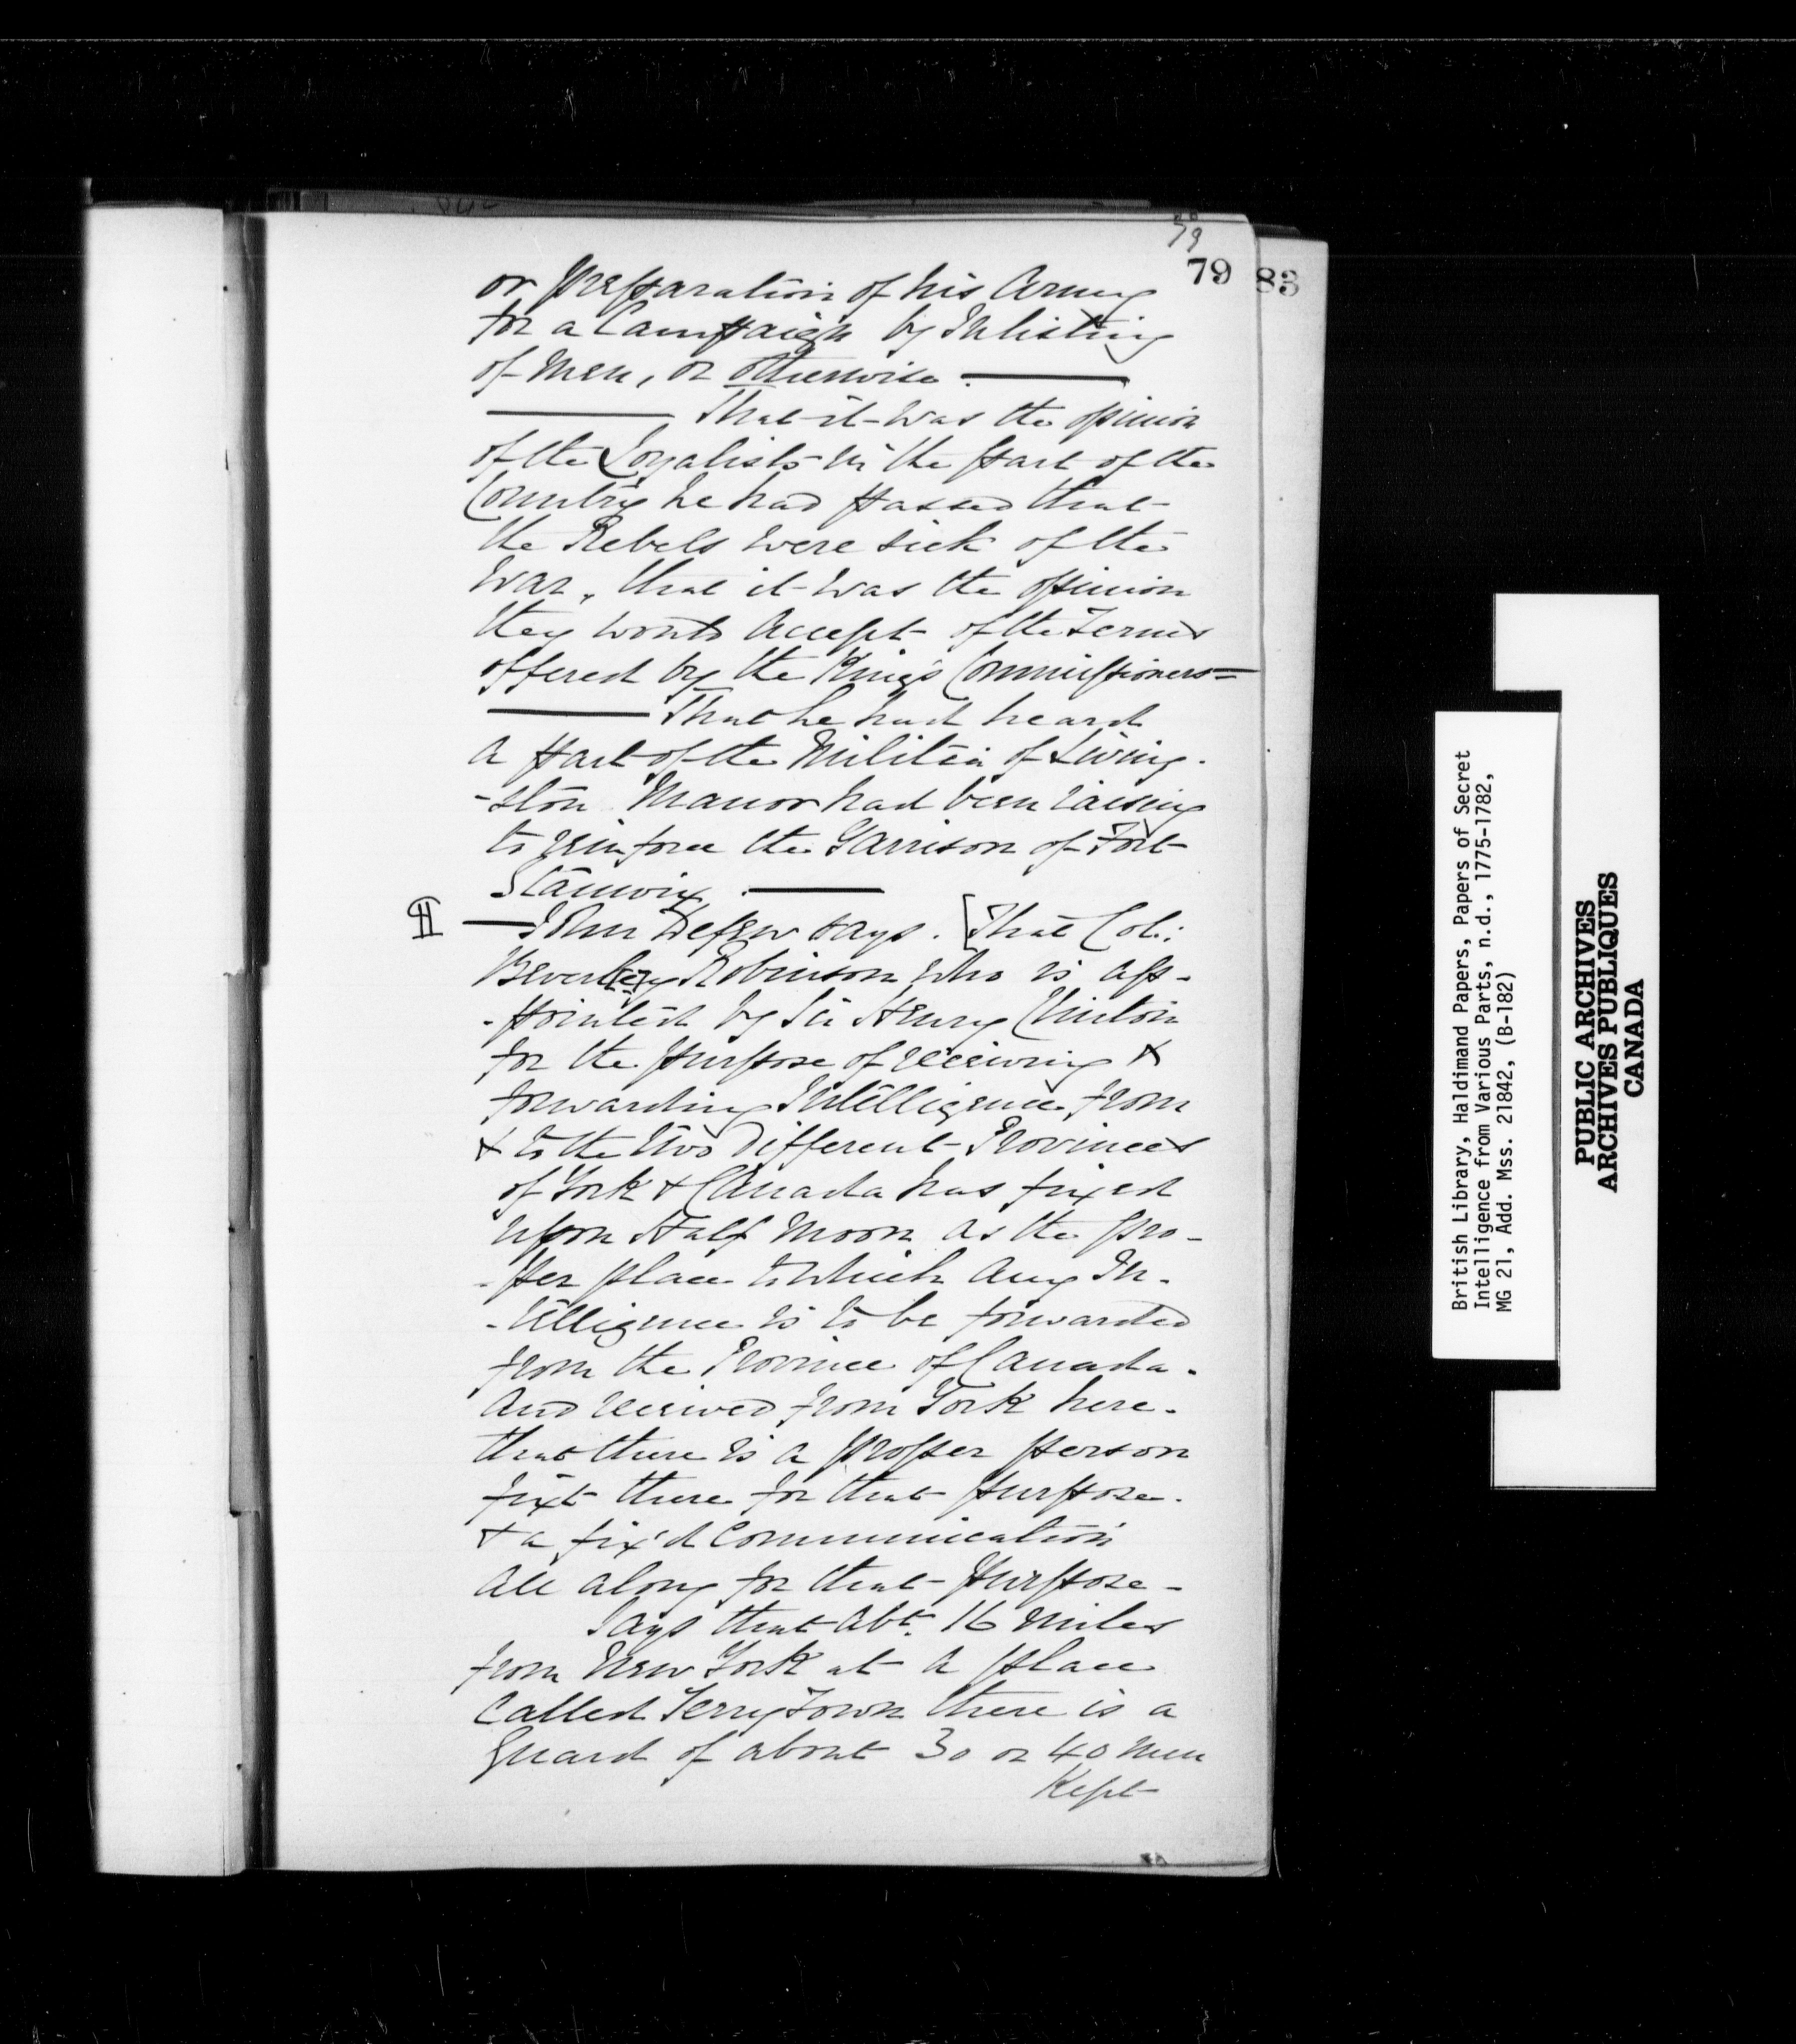 79
79 83
or preparation of his Army
for a Campaign by Inlisting
of Men, or otherwise. ———
——— That it was the opinion
of the Loyalists in the part of the
Country he had passed that
the Rebels were sick of the
War, that it was the opinion
they would Accept of the Terms
offered by the King's Commissioners =
——— That he had heard
a part of the Militia of Living-
-ston Manor had been raising
to reinforce the Garrison of Fort
Stanwix. ———
— John Depew says. [That Col:
Beverley Robinson who is ap-
-pointed by Sir Henry Clinton
for the purpose of receiving &
forwarding Intelligence from
& to the two different Provinces
of York & Canada has fixed
upon Half Moon as the pro-
-per place to which any In-
-telligence is to be forwarded
from the Province of Canada.
and received from York here.
that there is a proper person
fixt there for that purpose.
& a fix'd Communication
all along for that purpose -
Says that abt. 16 miles
from New York at a place
called Terrytown there is a
Guard of about 30 or 40 men
Kept
British Library, Haldimand Papers, Papers of Secret
Intelligence from Various Parts, n.d., 1775-1782,
MG 21, Add. Mss. 21842, (B-182)
PUBLIC ARCHIVES
ARCHIVES PUBLIQUES
CANADA